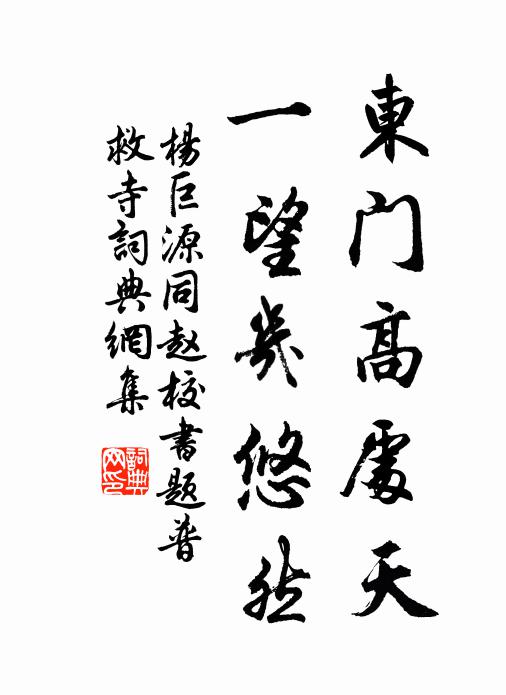 東門高處天
一望幾悠然
楊巨源同赵校書題普
救寺詞典網集
詞典
网印